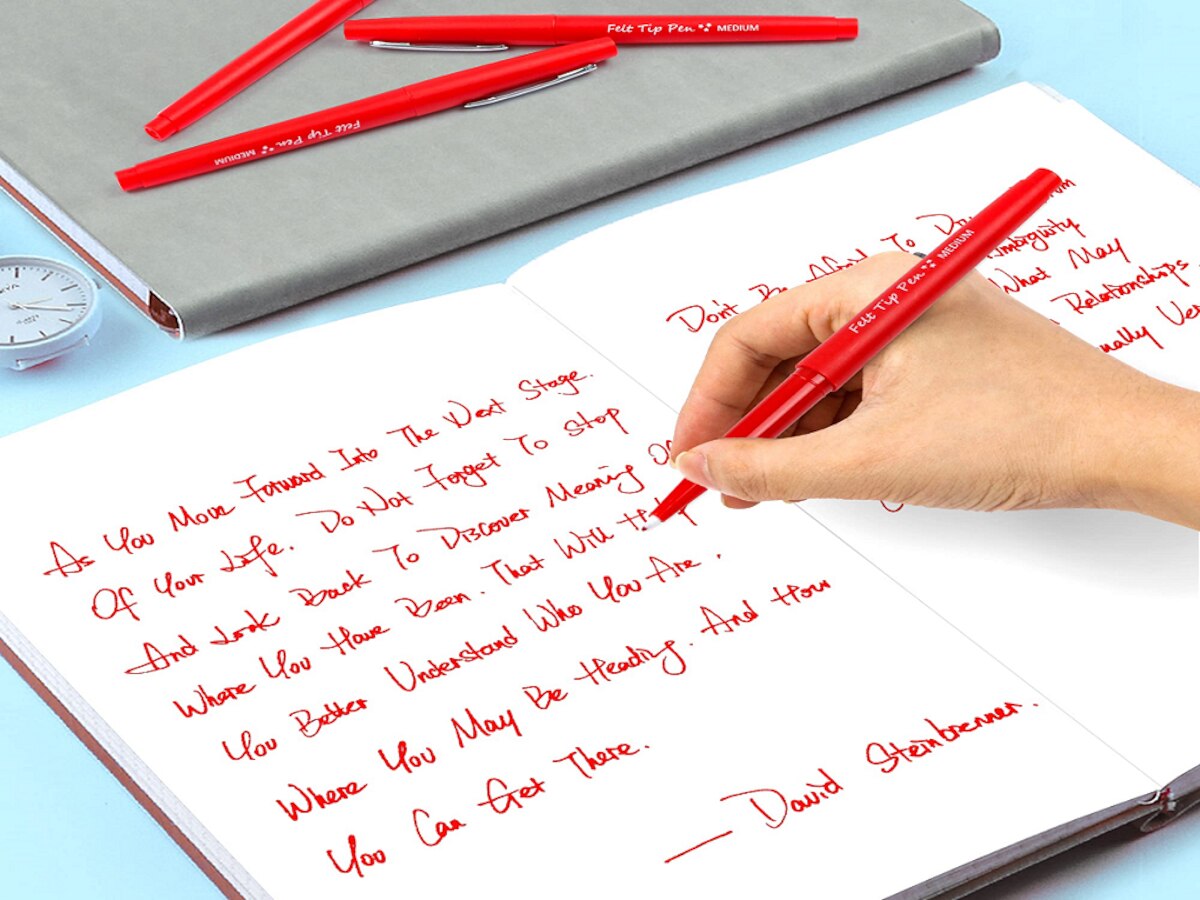 Felt Tip Pen MEDIUM
Felt Tip Pen MEDIUM
Felt Tip Pen MEDIUM
As You Move Forward Into The Next Stage.
Of Your Life. Do Not Forget To Stop
And Look Back To Discover Meaning Of
Where You Have Been. That Will
You Better Understand Who You Are.
Where You May Be Heading. And How
You Can Get There.
— David Steinbrenner.
Don't Be Afraid To
What May
Relationships.